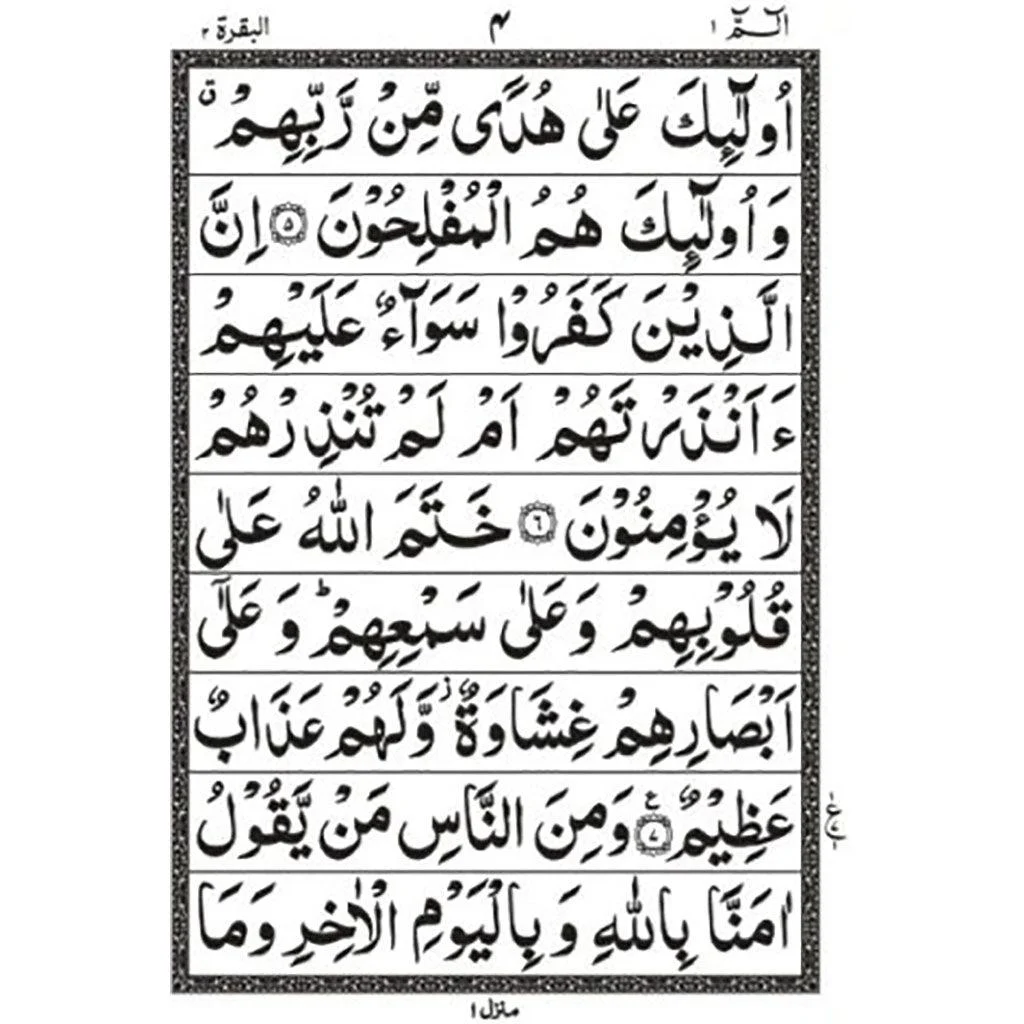 الٓمّٓ ۱ ۴ البقرة ۲
اُولٰٓئِكَ عَلٰى هُدًى مِّنْ رَّبِّهِمْ ۛق
وَ اُولٰٓئِكَ هُمُ الْمُفْلِحُوْنَ ۵ اِنَّ
الَّذِيْنَ كَفَرُوْا سَوَآءٌ عَلَيْهِمْ
ءَاَنْذَرْتَهُمْ اَمْ لَمْ تُنْذِرْهُمْ
لَا يُؤْمِنُوْنَ ۶ خَتَمَ اللّٰهُ عَلٰى
قُلُوْبِهِمْ وَ عَلٰى سَمْعِهِمْ ؕ وَ عَلٰٓى
اَبْصَارِهِمْ غِشَاوَةٌ ز وَّ لَهُمْ عَذَابٌ
عَظِيْمٌ ۷ ع وَ مِنَ النَّاسِ مَنْ يَّقُوْلُ
اٰمَنَّا بِاللّٰهِ وَ بِالْيَوْمِ الْاٰخِرِ وَ مَا
منزل ۱